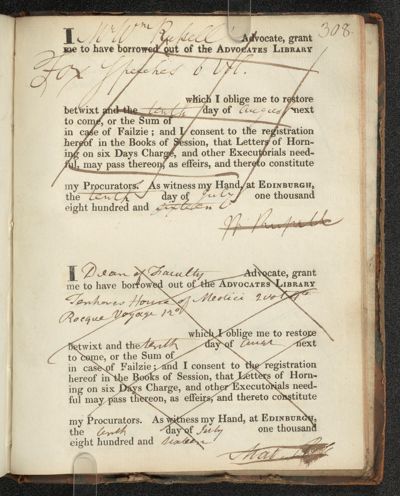 308.
I Mr Wm Russell Advocate, grant
me to have borrowed out of the ADVOCATES LIBRARY
Fox Speeches 6 Vol.
which I oblige me to restore
betwixt and the tenth day of August next
to come, or the Sum of
in case of Failzie; and I consent to the registration
hereof in the Books of Session, that Letters of Horn-
ing on six Days Charge, and other Executorials need-
ful, may pass thereon, as effeirs, and thereto constitute
my Procurators. As witness my Hand, at EDINBURGH,
the tenth day of July one thousand
eight hundred and sixteen
I Dean of Faculty Advocate, grant
me to have borrowed out of the ADVOCATES LIBRARY
Tenhoves House of Medici 2 vol 4to
Rocque Voyage 12o
which I oblige me to restore
betwixt and the tenth day of next
to come, or the Sum of
in case of Failzie; and I consent to the registration
hereof in the Books of Session, that Letters of Horn-
ing on six Days Charge, and other Executorials need-
ful, may pass thereon, as effeirs, and thereto constitute
my Procurators. As witness my Hand, at EDINBURGH,
the tenth day of July one thousand
eight hundred and sixteen